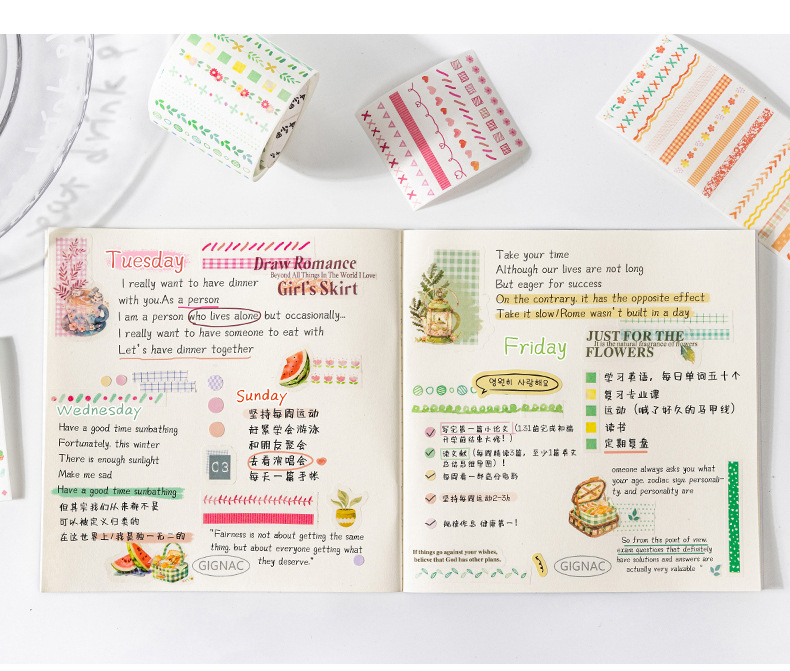 Tuesday
I really want to have dinner
with you.As a person
I am a person who lives alone but occasionally...
I really want to have someone to eat with
Let's have dinner together
Draw Romance
Beyond All Things In The World I Love
Girl's Skirt
Wednesday
Have a good time sunbathing
Fortunately, this winter
There is enough sunlight
Make me sad
Have a good time sunbathing
但其实我们从来都不是
可以被定义归类的
在这世界上/我是独一无二的
Sunday
坚持每周运动
赶紧学会游泳
和朋友聚会
去看演唱会
每天一篇手帐
C3
"Fairness is not about getting the same
thing, but about everyone getting what
they deserve."
GIGNAC
Take your time
Although our lives are not long
But eager for success
On the contrary, it has the opposite effect
Take it slow/Rome wasn't built in a day
Friday
JUST FOR THE
It is the natural fragrance of flowers
FLOWERS
영원히 사랑해요
学习英语，每日单词五十个
复习专业课
运动（喊了好久的马甲线）
读书
定期复盘
写完第一篇小论文（1.31前完成初稿
开学前结束大修！）
读文献（每周精读3篇，至少1篇英文
总结思维导图）！
每周看一部高分电影
坚持每周运动2-3次
规律作息 健康第一！
omeone always asks you what
your age, zodiac sign, personali-
ty, and personality are
So from this point of view,
exam questions that definitely
have solutions and answers are
actually very valuable "
If things go against your wishes,
believe that God has other plans.
GIGNAC